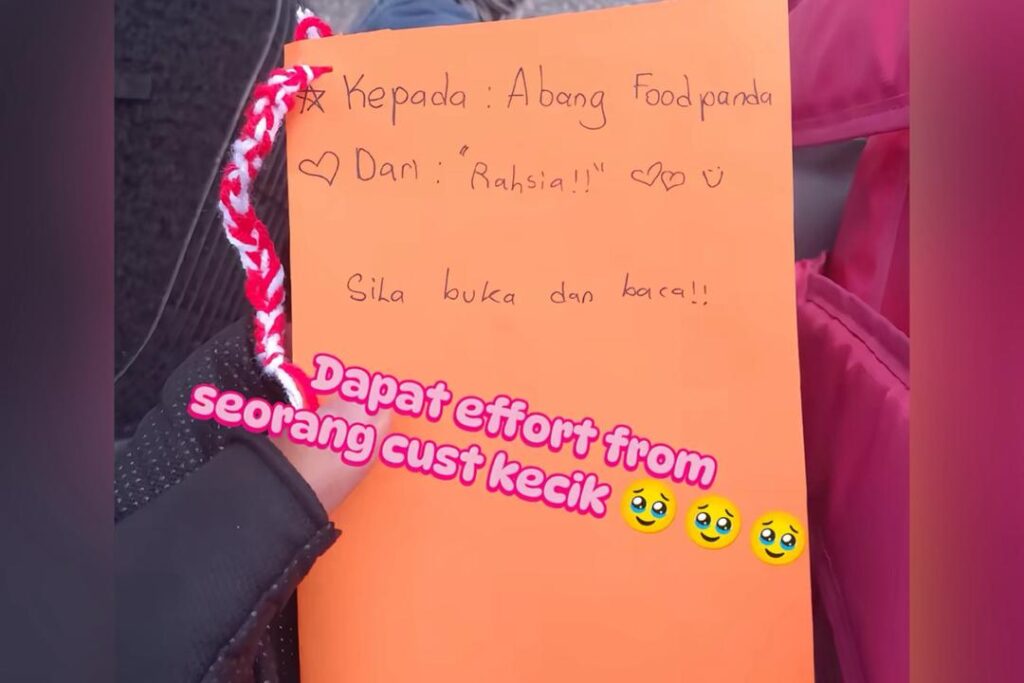 Kepada : Abang Foodpanda
Dari : "Rahsia!!"
Sila buka dan baca!!
Dapat effort from
seorang cust kecik